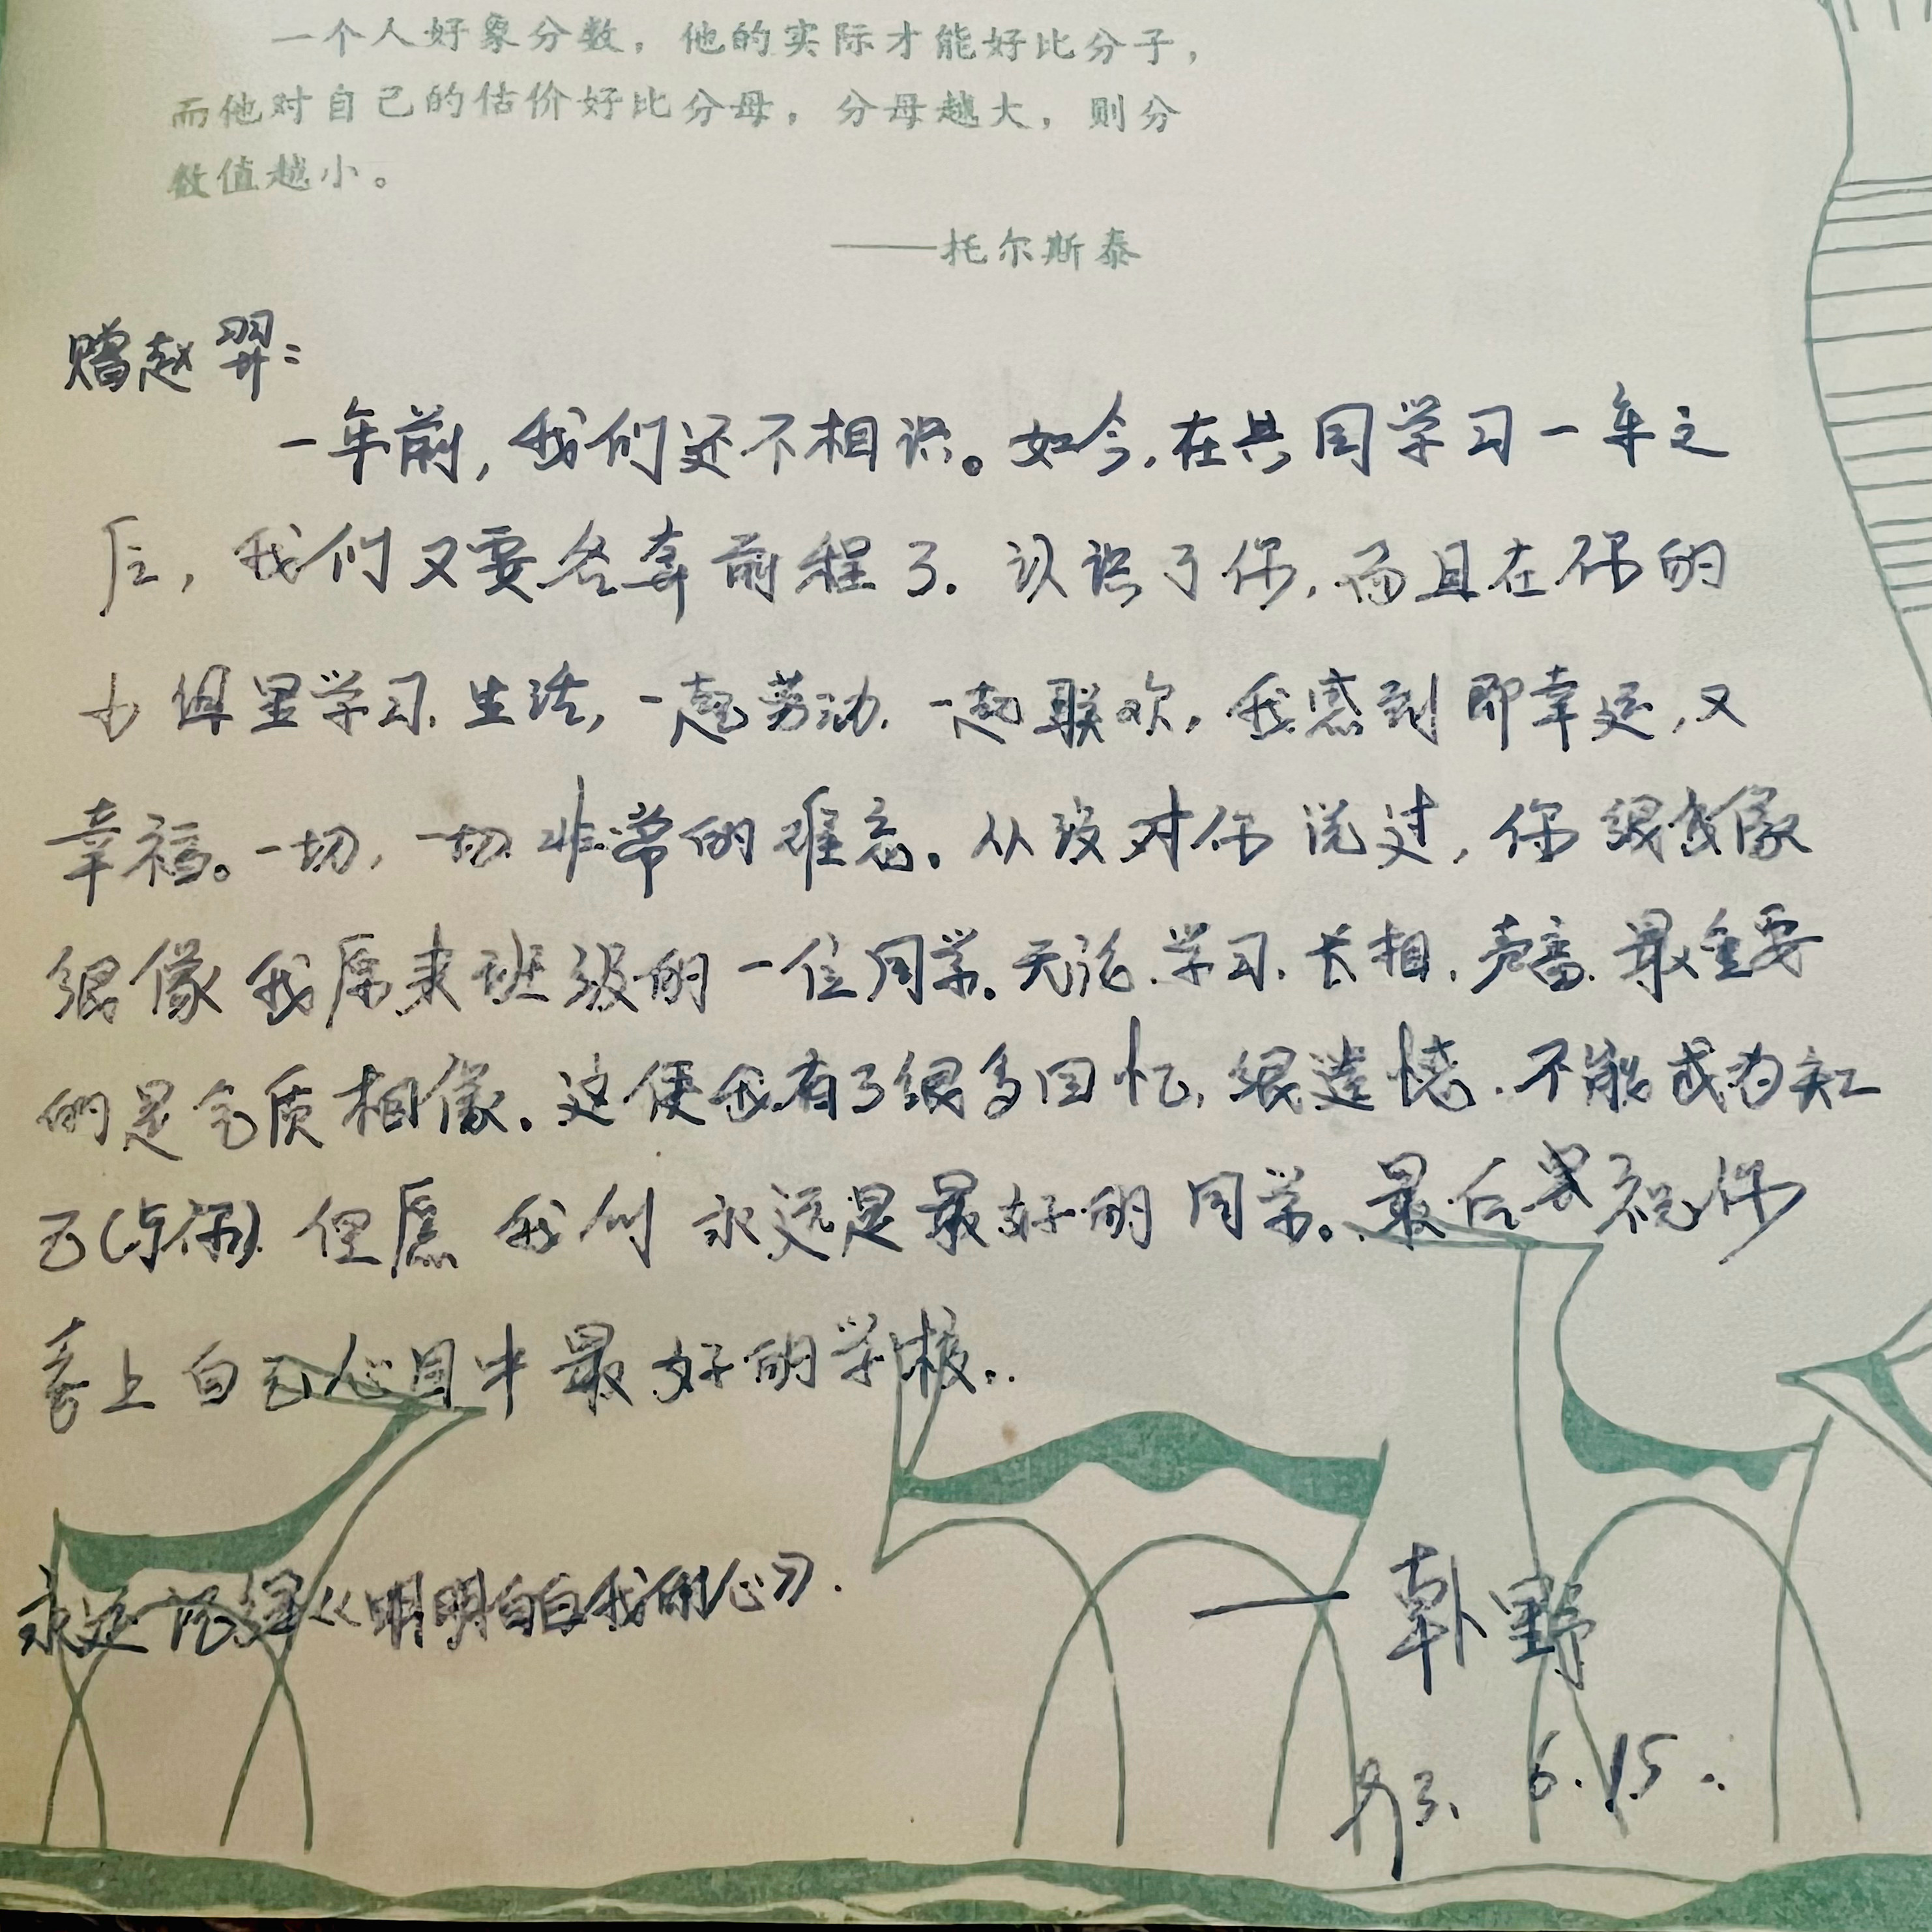 一个人好象分数，他的实际才能好比分子，
而他对自己的估价好比分母，分母越大，则分
数值越小。
——托尔斯泰
赠赵羿：
一年前，我们还不相识。如今，在共同学习一年之
后，我们又要各奔前程了。认识了你，而且在你的
小组里学习、生活，一起劳动，一起联欢，我感到即幸运，又
幸福。一切，一切非常的难忘。从没对你说过，你很像
很像我原来班级的一位同学。无论学习、长相、声音、最重要
的是气质相像。这使我有了很多回忆，很遗憾，不能成为知
己(与你)。但愿我们永远是最好的同学。最后祝你
考上自己心目中最好的学校。
永远记得《明明白白我的心》.
——韩野
93. 6.15.